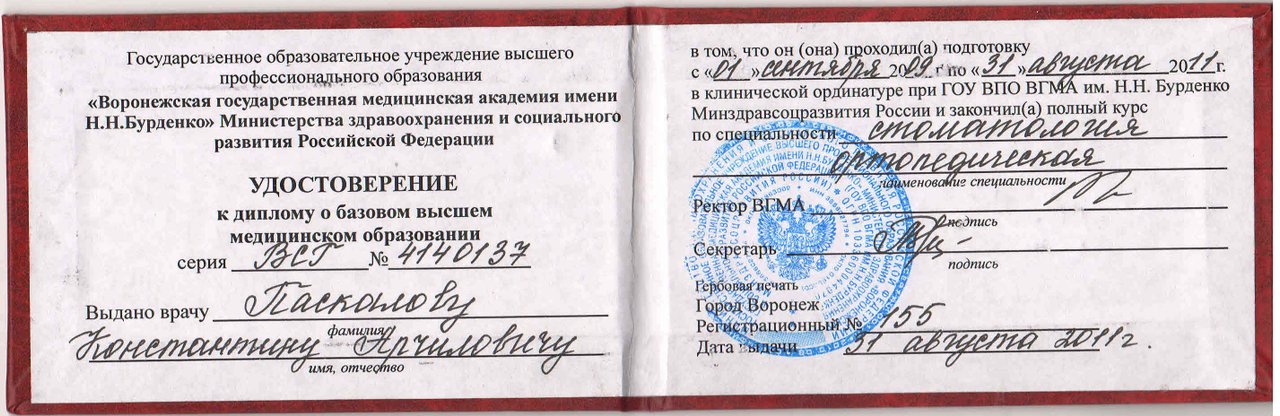 Государственное образовательное учреждение высшего
профессионального образования
«Воронежская государственная медицинская академия имени
Н.Н.Бурденко» Министерства здравоохранения и социального
развития Российской Федерации
УДОСТОВЕРЕНИЕ
к диплому о базовом высшем
медицинском образовании
серия ВСГ № 4140137
Выдано врачу Паскалову
фамилия
Константину Арчиловичу
имя, отчество
в том, что он (она) проходил(а) подготовку
с «01» сентября 2009 г по «31» августа 2011 г.
в клинической ординатуре при ГОУ ВПО ВГМА им. Н.Н. Бурденко
Минздравсоцразвития России и закончил(а) полный курс
по специальности стоматология
ортопедическая
наименование специальности
Ректор ВГМА
подпись
Секретарь
подпись
Гербовая печать
Город Воронеж
Регистрационный № 155
Дата выдачи 31 августа 2011г.